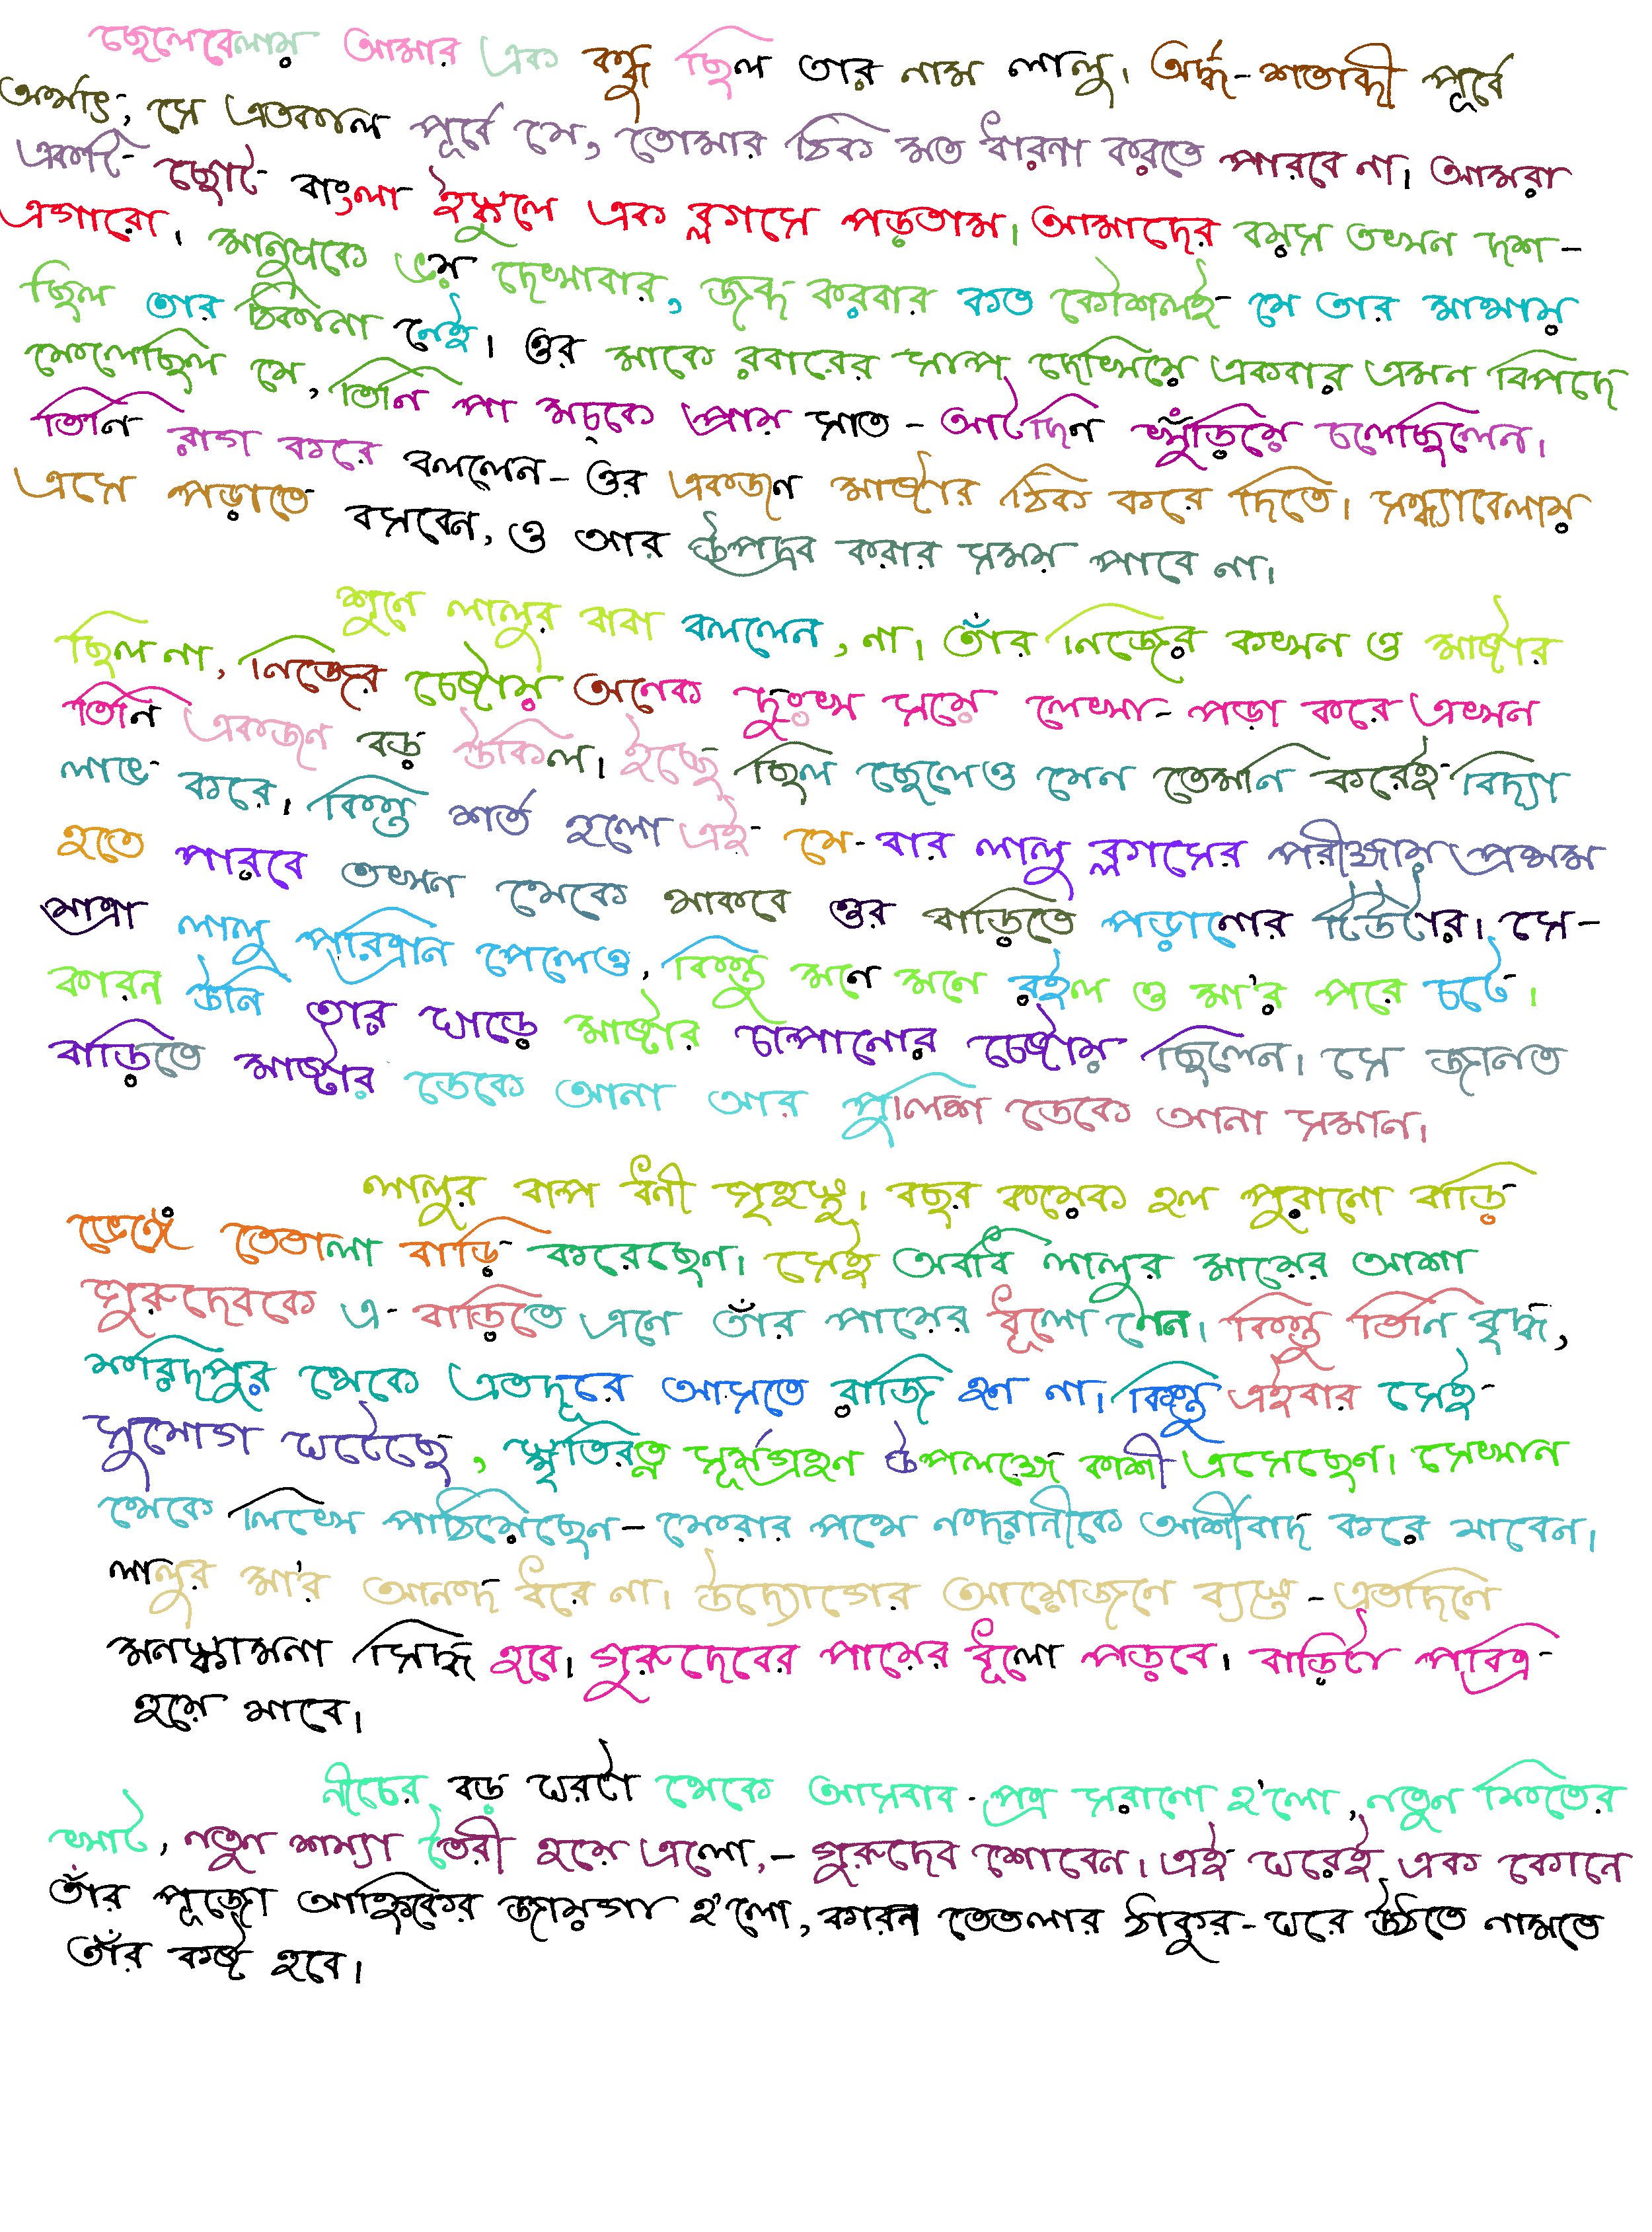 ছেলেবেলায় আমার এক বন্ধু ছিল তার নাম লালু। অর্দ্ধ-শতাব্দী পূর্বে
অর্থাৎ, সে এতকাল পূর্বে যে, তোমার ঠিক মত ধারনা করতে পারবে না। আমরা
একটি ছোট বাংলা ইস্কুলে এক ক্লাসে পড়তাম। আমাদের বয়স তখন দশ-
এগারো। মানুষকে ভয় দেখাবার, জব্দ করবার কত কৌশলই যে তার মাথায়
ছিল তার ঠিকানা নেই। ওর মাকে রবারের সাপ দেখিয়ে একবার এমন বিপদে
ফেলেছিল যে, তিনি পা মচ্‌কে প্রায় সাত-আটদিন খুঁড়িয়ে চলেছিলেন।
তিনি রাগ করে বললেন- ওর একজন মাষ্টার ঠিক করে দিতে। সন্ধ্যাবেলায়
এসে পড়াতে বসবেন, ও আর উপদ্রব করার সময় পাবে না।
শুনে লালুর বাবা বললেন, না। তাঁর নিজের কখন ও মাষ্টার
ছিল না, নিজের চেষ্টায় অনেক দুঃখ সয়ে লেখা-পড়া করে এখন
তিনি একজন বড় উকিল। ইচ্ছে ছিল ছেলেও যেন তেমনি করেই বিদ্যা
লাভ করে। কিন্তু শর্ত হলো এই যে-বার লালু ক্লাসের পরীক্ষায় প্রথম
হতে পারবে তখন থেকে থাকবে ওর বাড়িতে পড়ানোর টিউটার। সে-
যাত্রা লালু পরিত্রান পেলেও, কিন্তু মনে মনে রইল ও মা'র পরে চটে।
কারন উনি তার ঘাড়ে মাষ্টার চাপানোর চেষ্টায় ছিলেন। সে জানত
বাড়িতে মাষ্টার ডেকে আনা আর পুলিশ ডেকে আনা সমান।
লালুর বাপ ধনী গৃহস্থ। বছর কয়েক হল পুরানো বাড়ি
ভেঙ্গে তেতালা বাড়ি করেছেন। সেই অবধি লালুর মায়ের আশা
গুরুদেবকে এ-বাড়িতে এনে তাঁর পায়ের ধূলো নেন। কিন্তু তিনি বৃদ্ধ,
ফরিদপুর থেকে এতদূরে আসতে রাজি হন না। কিন্তু এইবার সেই
সুযোগ ঘটেছে, স্মৃতিরত্ন সূর্যগ্রহণ উপলক্ষে কাশী এসেছেন। সেখান
থেকে লিখে পাঠিয়েছেন-ফেরার পথে নন্দরানীকে আর্শীবাদ করে যাবেন।
লালুর মা'র আনন্দ ধরে না। উদ্যোগের আয়োজনে ব্যস্ত-এতদিনে
মনস্কামনা সিদ্ধি হবে। গুরুদেবের পায়ের ধূলো পড়বে। বাড়িটা পবিত্র
হয়ে যাবে।
নীচের বড় ঘরটা থেকে আসবাব-পত্র সরানো হ'লো, নতুন ফিতের
খাট, নতুন শয্যা তৈরী হয়ে এলো,-গুরুদেব শোবেন। এই ঘরেই এক কোনে
তাঁর পূজো আহ্নিকের জায়গা হ'লো, কারন তেতলার ঠাকুর-ঘরে উঠতে নামতে
তাঁর কষ্ট হবে।